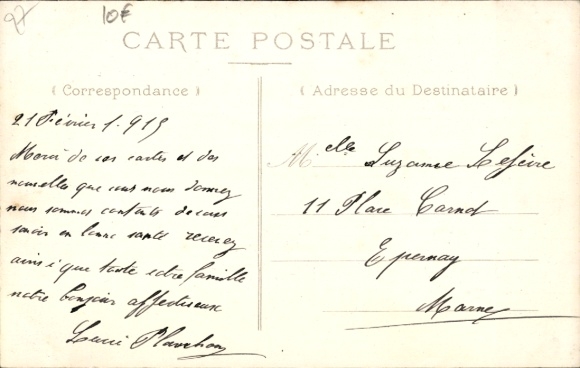 27
10€
CARTE POSTALE
( Correspondance )
( Adresse du Destinataire )
21 Février 1.915
Merci de vos cartes et des
nouvelles que vous nous donnez
nous sommes contents de vous
savoir en bonne santé recevez
ainsi que toute votre famille
notre bonjour affectueux
Planchon
Melle Suzanne Lefèvre
11 Place Carnot
Epernay
Marne